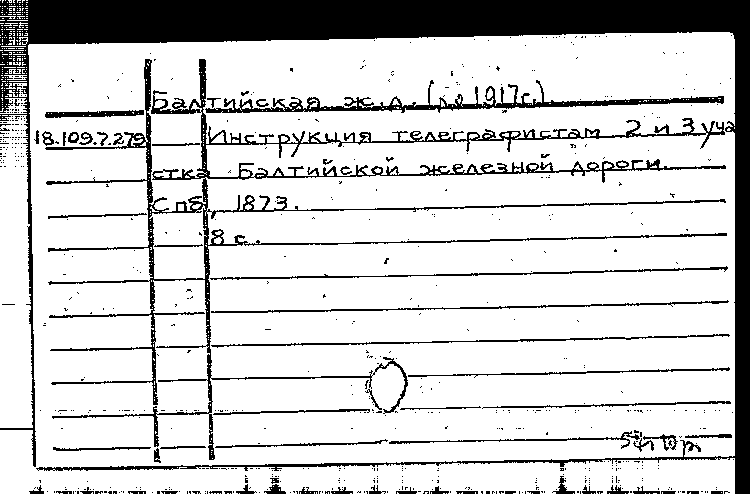 Балтийская ж.д. (до 1917г.)
18.109.7.279 Инструкция телеграфистам 2 и 3 уча
стка Балтийской железной дороги.
Спб, 1873.
8 с.